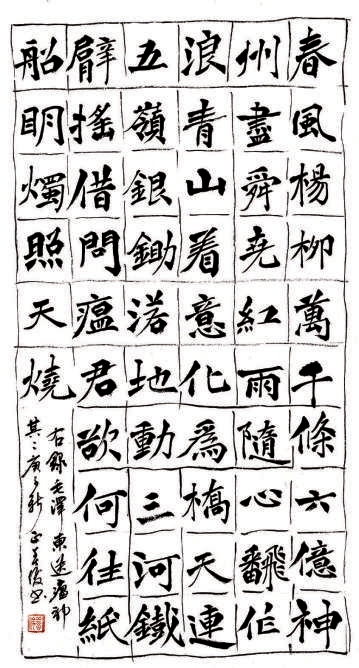 春風楊柳萬千條六億神
州盡舜堯紅雨隨心飜作
浪青山着意化為橋天連
五嶺銀鋤落地動三河鐵
臂搖借問瘟君欲何往紙
船眀燭照天燒
右錄毛澤東送瘟神
其二庚子新正書